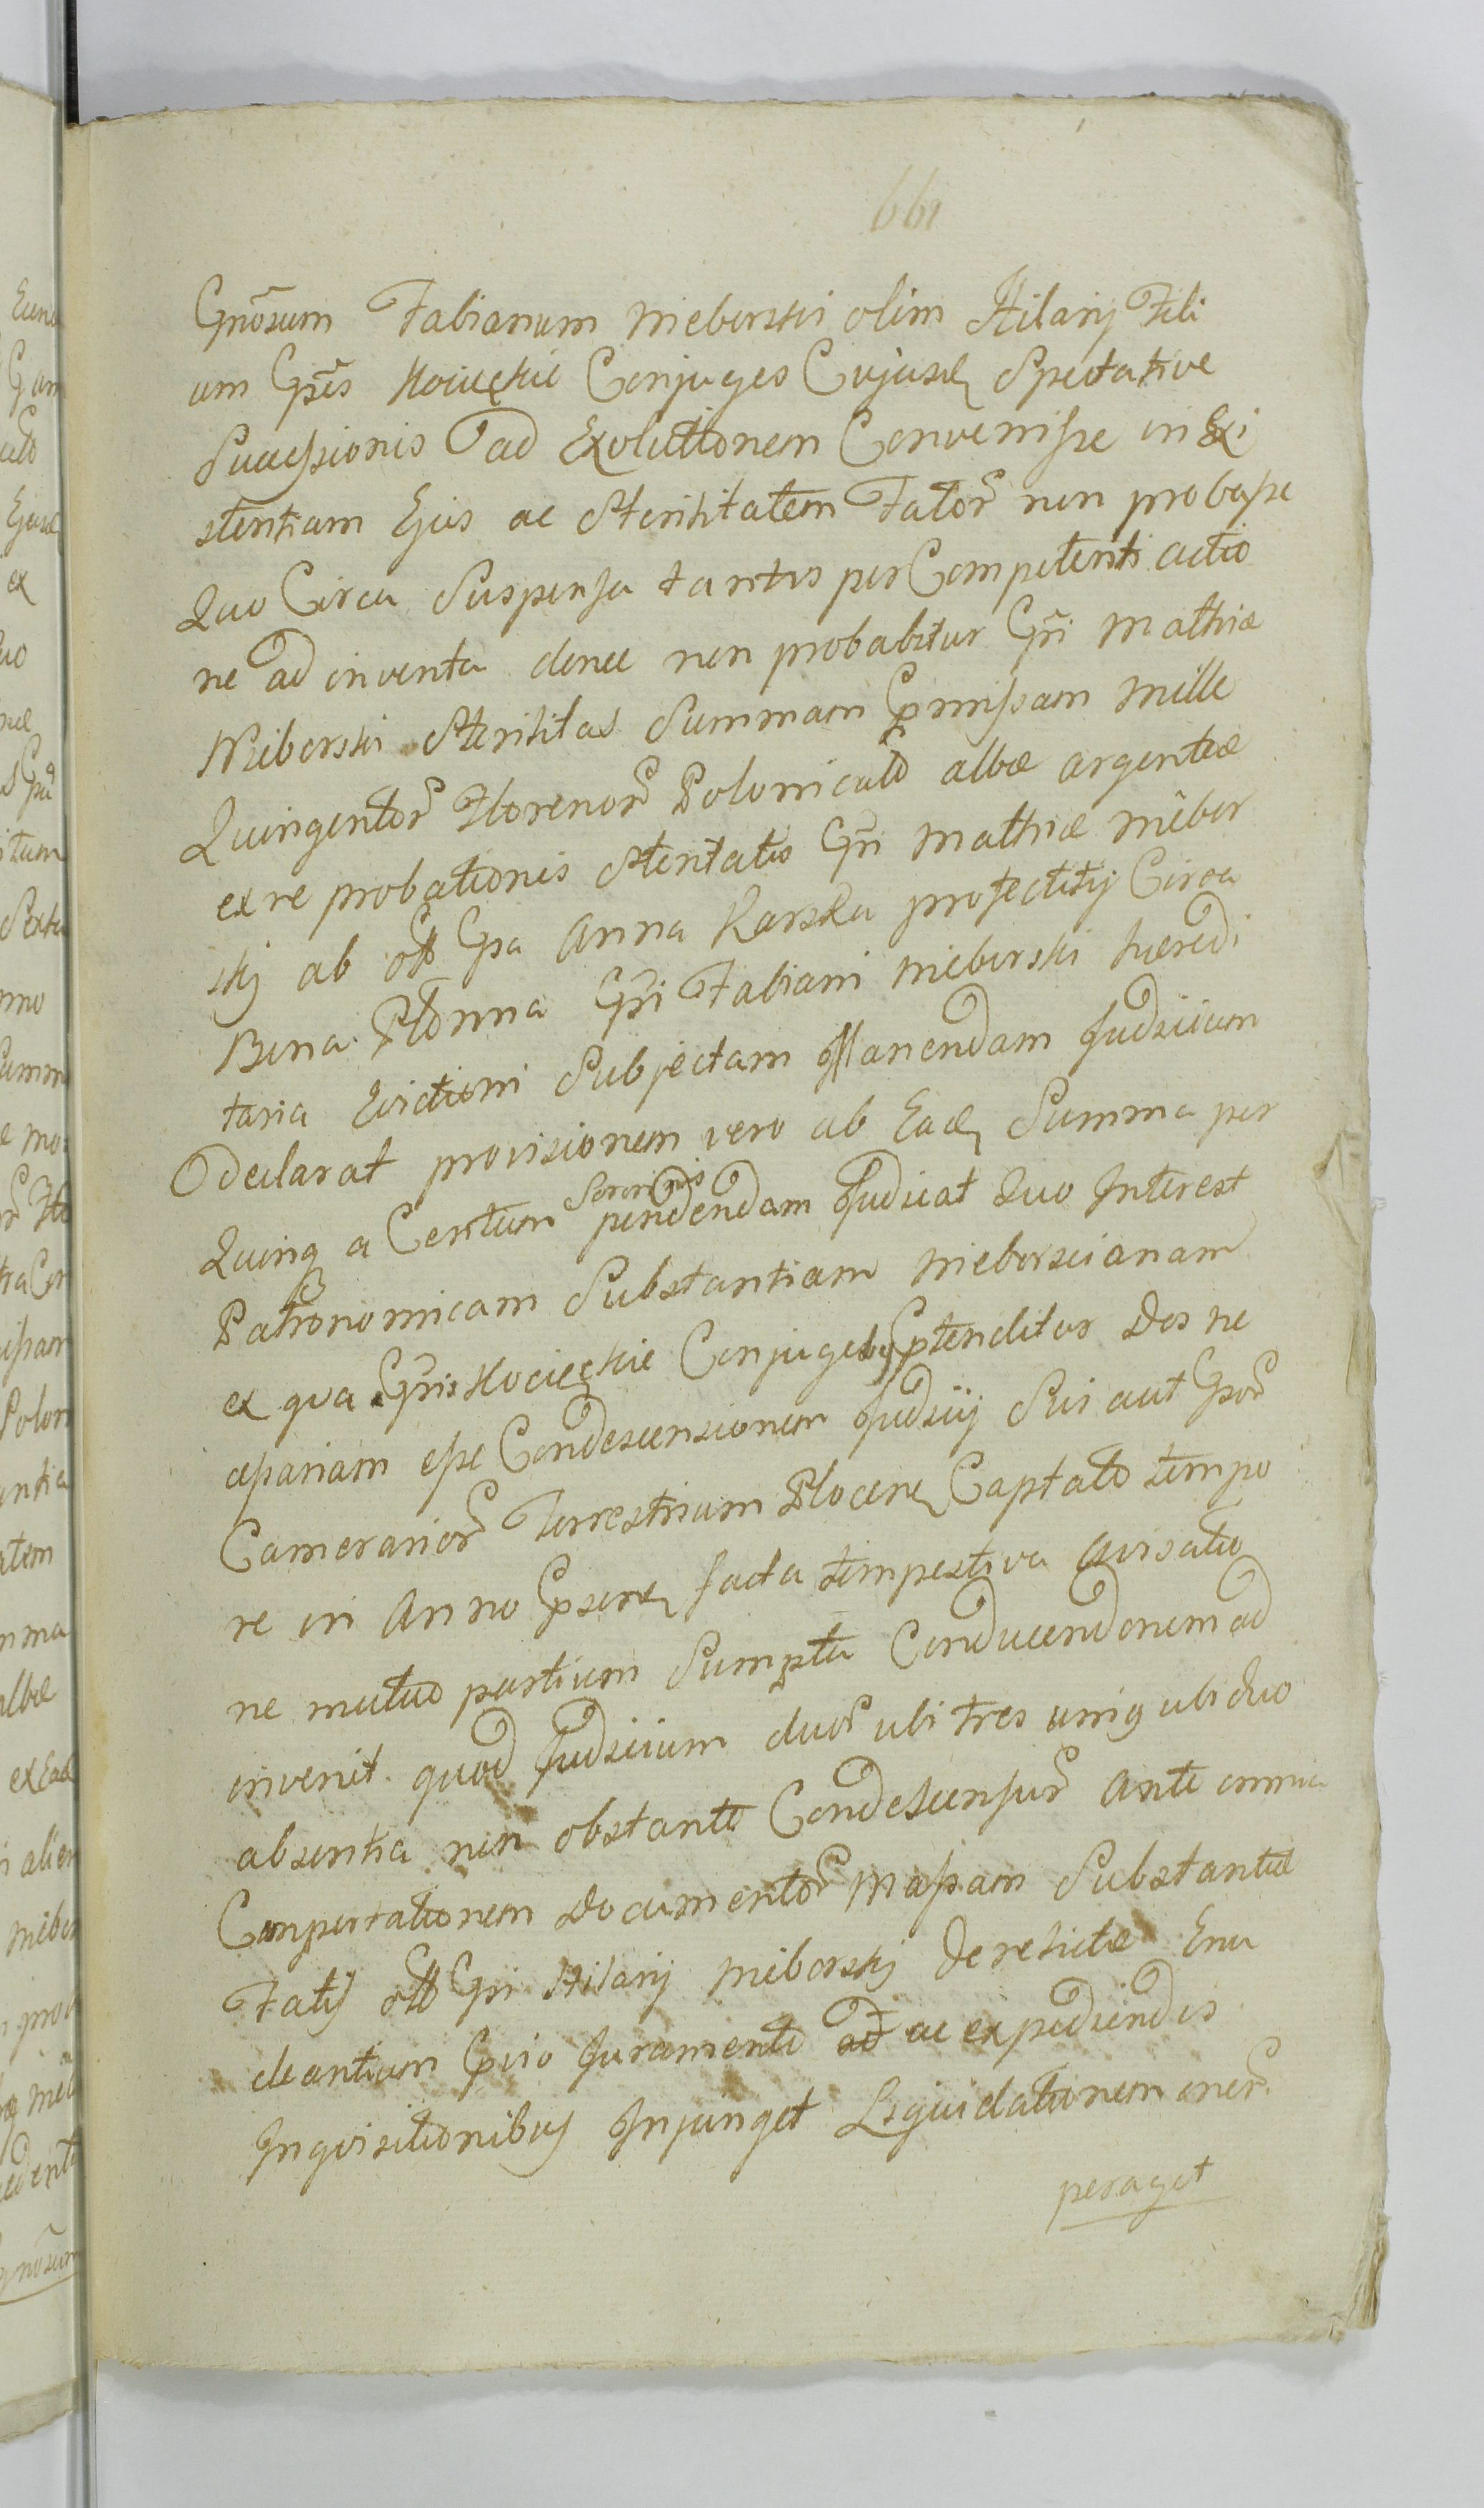 661
Gnosum Fabianum Nieborski olim Hilarij Fili
um Gsis Kocięckie Conjuges Cujusd Spectative
Successionis ad Exolutionem Convenisse in Exi
stentiam Ejus ac Sterilitatem Fator non probasse
Quo Circa Suspensa tantis per Competenti actio
ne ad inventa donec non probabitur Gsi Mathiæ
Nieborski Sterilitas Summam pmissam Mille
Quingentor Florenor Polonicald albæ argenteæ
ex re probationis Steritatis Gsi Mathiæ Niebor
skij ab Gsa Anna Karska profectitij Circa
Bona Płonna Gsi Fabiani Nieborski hæredi
taria Evictioni Subjectam Manendam Judicium
Declarat provisionem vero ab Ead Summa per
Quinq a Centum pendendam Judicat Quo Interest
Patronomicam Substantiam Nieborscianam
ex qva Gsis Kocięckie Conjugibus ptenditur Dos ne
cessariam esse Condescensionem Judicij Sui aut Gsor
Camerarior Terrestrium Plocen Captato tempo
re in Anno psen facta tempestiva Avisatio
ne mutuo partium Sumptu Conducendonem ad
invenit quod Judicium duor ubi tres uniq ubi duo
absentia non obstante Condescensur Ante omnia
Comportationem Documentor Massam Substantiæ
Fatis Gsi Hilarij Nieborskij Derelictæ Enu
cleantium pvio Juramento ad ac expediendis
Inqvisitionibus Injunget Liquidationem oner
peraget